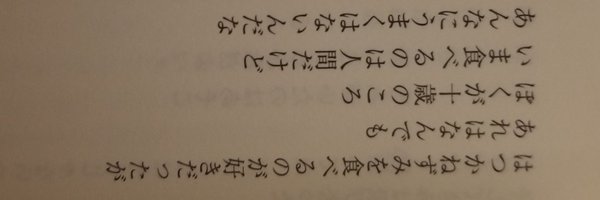 あんなにうまくはないんだな
いま食べるのは人間だけど
ぼくが十歳のころ
あれはなんでも
はつかねずみを食べるのが好きだったが